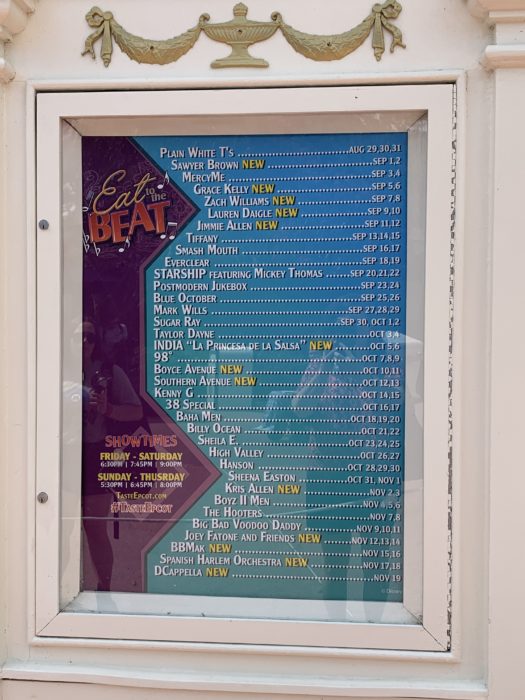 Eat
to the
BEAT
PLAIN WHITE T's AUG 29,30,31
SAWYER BROWN NEW SEP 1,2
MERCYME SEP 3,4
GRACE KELLY NEW SEP 5,6
ZACH WILLIAMS NEW SEP 7,8
LAUREN DAIGLE NEW SEP 9,10
JIMMIE ALLEN NEW SEP 11,12
TIFFANY SEP 13,14,15
SMASH MOUTH SEP 16,17
EVERCLEAR SEP 18,19
STARSHIP FEATURING MICKEY THOMAS SEP 20,21,22
POSTMODERN JUKEBOX SEP 23,24
BLUE OCTOBER SEP 25,26
MARK WILLS SEP 27,28,29
SUGAR RAY SEP 30, OCT 1,2
TAYLOR DAYNE OCT 3,4
INDIA "LA PRINCESA DE LA SALSA" NEW OCT 5,6
98° OCT 7,8,9
BOYCE AVENUE NEW OCT 10,11
SOUTHERN AVENUE NEW OCT 12,13
KENNY G OCT 14,15
38 SPECIAL OCT 16,17
BAHA MEN OCT 18,19,20
BILLY OCEAN OCT 21,22
SHEILA E. OCT 23,24,25
HIGH VALLEY OCT 26,27
HANSON OCT 28,29,30
SHEENA EASTON OCT 31, NOV 1
KRIS ALLEN NEW NOV 2,3
BOYZ II MEN NOV 4,5,6
THE HOOTERS NOV 7,8
BIG BAD VOODOO DADDY NOV 9,10,11
JOEY FATONE AND FRIENDS NEW NOV 12,13,14
BBMAK NOV 15,16
SPANISH HARLEM ORCHESTRA NEW NOV 17,18
DCAPPELLA NEW NOV 19
SHOWTIMES
FRIDAY - SATURDAY
6:30PM | 7:45PM | 9:00PM
SUNDAY - THUSRDAY
5:30PM | 6:45PM | 8:00PM
TASTEEPCOT.COM
#TASTEEPCOT
© Disney